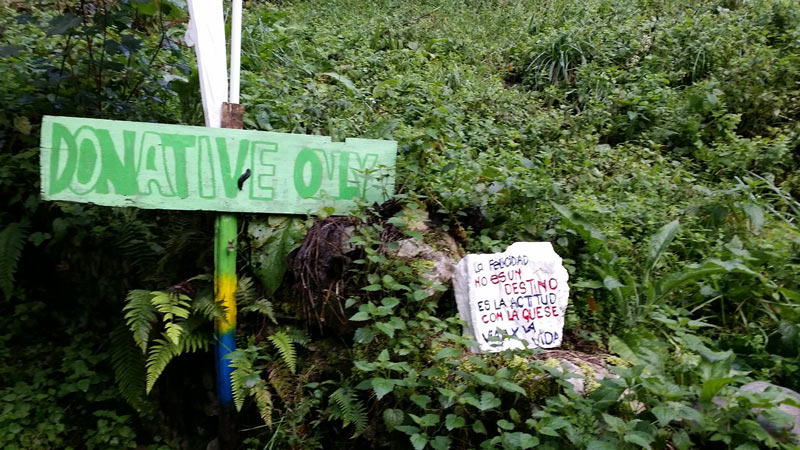 DONATIVE ONLY
LA FELICIDAD
NO ES UN
DESTINO
ES LA ACTITUD
CON LA QUE SE
VIAJA LA
VIDA